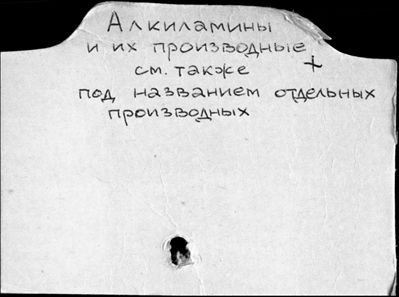 Алкиламины
и их производные
см. также +
под названием отдельных
производных